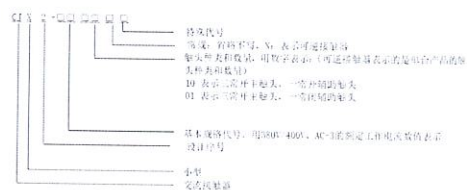 特殊代号
常规：省略不写，N：表示可逆接触器
触头种类和数量，用数字表示：（可逆接触器表示的是单台产品的触
头种类和数量）
10 表示三常开主触头，一常开辅助触头
01 表示三常开主触头，一常闭辅助触头
基本规格代号，用380V/400V、AC-3的额定工作电流数值表示
设计序号
小型
交流接触器